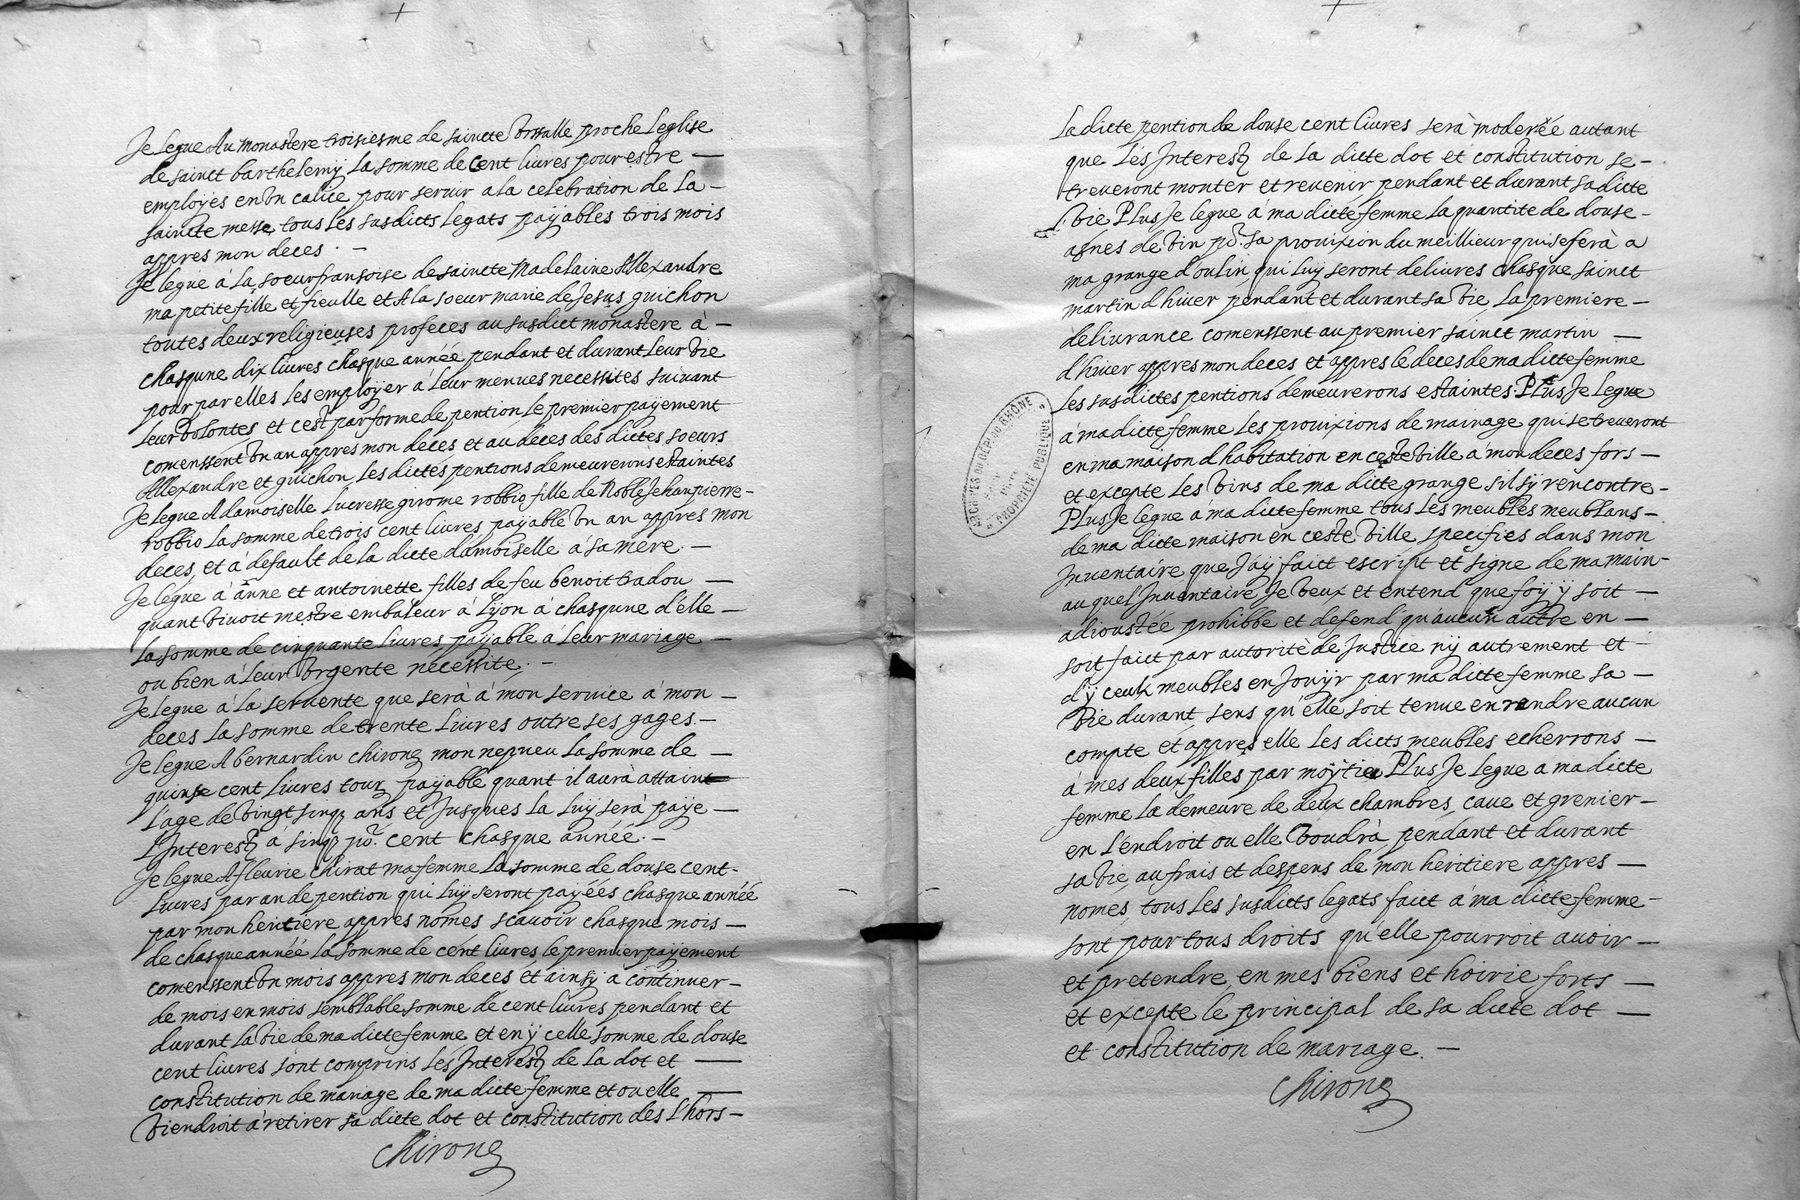 Je legue Au monastere troisiesme de saincte Vrsulle proche Leglise
de sainct barthelemÿ La somme de Cent liures pour estre —
employes en Vn calice pour seruir a la celebration de La –
saincte messe tous les susdicts Legats paÿables trois mois
appres mon deces . —
Je legue à La soeur fransoise de saincte Madelaine Allexandre
ma petite fille et fieulle et A la soeur marie de Jesus guichon
toutes deux religieuses profeces au susdict monastere à –
chasqune dix liures chasque année pendant et durant Leur Vie
pour par elles Les employer à Leur menues necessites suiuant
Leur Volontes et cest par forme de pention Le premier payement
comenssent Vn an appres mon deces et au deces des dictes soeurs
Allexandre et guichon Les dictes pentions demeurerons estaintes
Je legue A damoiselle Lucresse girome robbio fille de Noble Jehan pierre –
robbio La somme de trois cent liures payable Vn an appres mon
deces, et à default de la dicte damoiselle a sa mère . —
Je legue à anne et antoinette filles de feu benoit Vadou —
quant Viuoit mestre embaleur à Lÿon à chasqune d'elle –
La somme de cinquante liures paÿable à Leur mariage –
ou bien à Leur Vrgente necessite . –
Je legue à la seruente que serà à mon seruice à mon –
deces La somme de trente liures outre ses gages . –
Je legue A bernardin Chirong mon nepueu La somme de —
quinse cent liures tourz paÿable quant il aurà attaint
L'age de Vingt sinqz ans et Jusques la luÿ serà paÿe —
L'Interestz à sinqz po.r cent chasque année . –
Je legue A fleurie Chirat ma femme La somme de douse cent -
Liures par an de pention qui luÿ seront payéés chasque année
par mon heritière appres nomes scauoir chasque mois –
de chasque année La somme de cent liures le premier paÿement
comenssent Vn mois appres mon deces et ainsÿ a continuer –
de mois en mois semblable somme de cent liures pendant et
durant La Vie de ma dicte femme et en ÿ celle somme de douse
cent liures sont comprins les Interestz de La dot et —
constitution de mariage de ma dicte femme et ou elle —
Viendroit à retirer sa dicte dot et constitution dès L'hors –
Chirong
La dicte pention de douse cent liures serà moderée autant
que Les Interestz de La dicte dot et constitution se –
treuveront monter et reuenir pendant et durant sa dicte
Vie Plus Je legue à ma dicte femme La quantite de douse –
asnes de Vin po.r sa prouixion du meillieur qui se ferà a
ma grange d'oulin, qui luÿ seront deliures chasque sainct
martin d'hiuer pendant et durant sa Vie La premiere –
deliurance comenssent au premier sainct martin —
d'hiuer appres mon deces et appres le deces de ma dicte femme
Les susdictes pentions demeurerons estaintes. Plus Je Legue
à ma dicte femme Les prouixions de mainage qui se treuveront
en ma maison d'habitation en ceste Ville à mon deces fors –
et excepte Les Vins de ma dicte grange s'il s'ÿ rencontre –
Plus Je legue à ma dicte femme tous Les meubles meublans –
de ma dicte maison en ceste Ville speciffies dans mon
Inuentaire que J'aÿ faict escript et signe de ma main –
au quel Inuentaire Je Veux et entend que foÿ ÿ soit —
adioustée prohibbé et defend qu'aucun autre en —
soit faict par autoritè de Justice nÿ autrement et –
d'ÿ ceulx meubles en Jouÿr par ma dicte femme sa —
Vie durant sens qu'elle soit tenue en rendre aucun
compte et appres elle Les dicts meubles echerrons –
à mes deux filles par moÿtie Plus Je legue a ma dicte
femme La demeure de deux chambres, caue et grenier –
en L'endroit ou elle Voudrà pendant et durant
sa Vie, au frais et despens de mon héritiere appres –
nomes, tous Les susdicts legats faict à ma dicte femme –
sont pour tous droits qu'elle pourroit auoir —
et pretendre en mes biens et hoirie forts —
et excepte le principal de sa dicte dot —
et constitution de mariage . —
Chirong
ARCHIVES DU DÉP.T DU RHÔNE
PROPRIÉTÉ PUBLIQUE